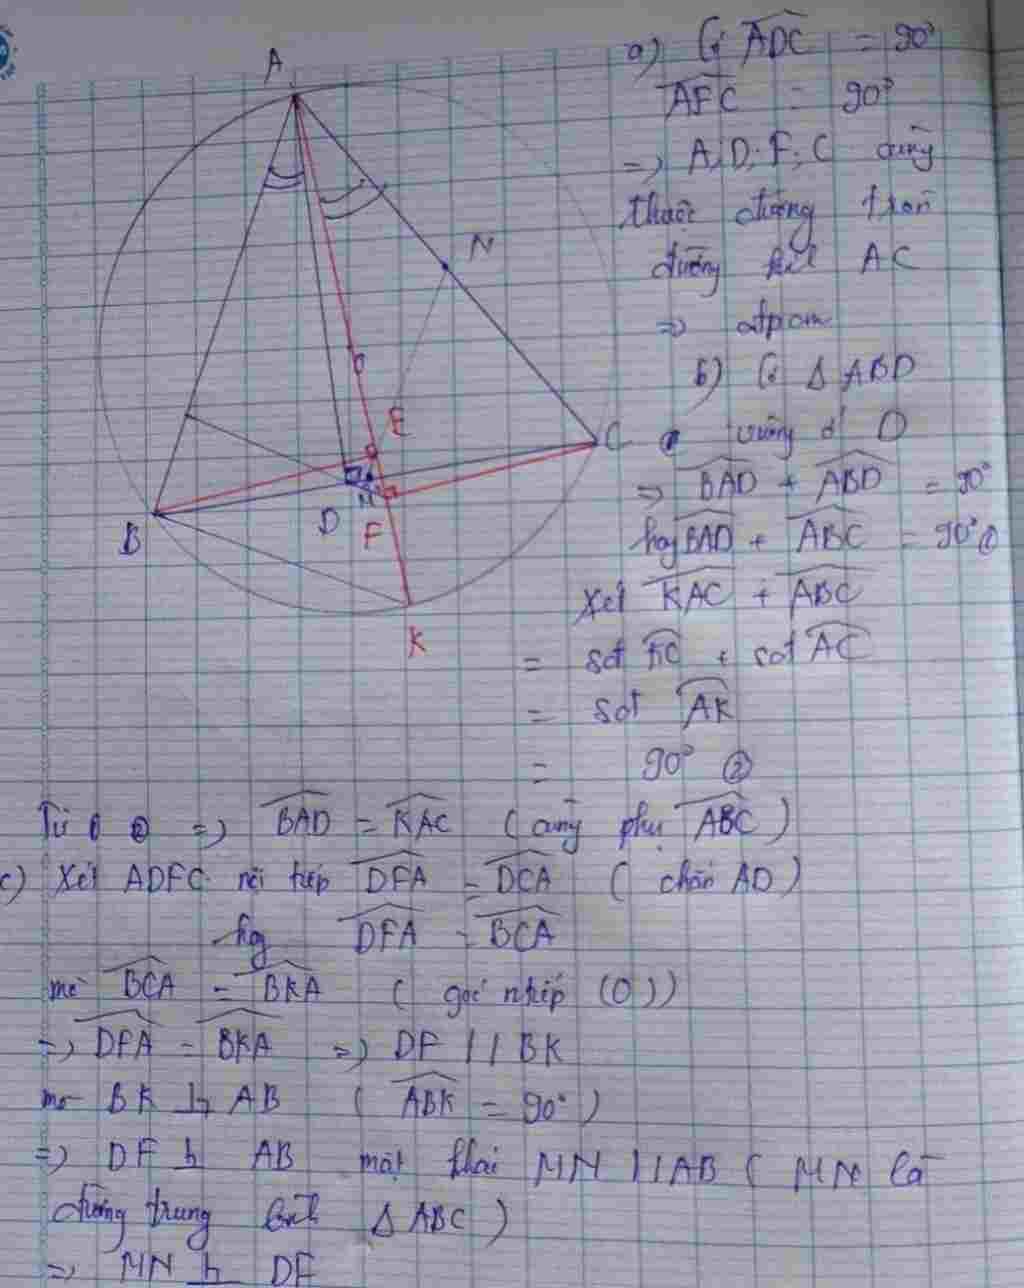 A
N
O
E
C
B
D
M
F
K
a) Có ADC = 90°
AFC = 90°
=> A, D, F, C cùng
thuộc đường tròn
đường kính AC
=> đpcm
b) Có Δ ABD
vuông ở D
=> BAD + ABD = 90°
hay BAD + ABC = 90° ①
Xét KAC + ABC
= sđ KC + sđ AC
= sđ AK
= 90° ②
Từ ① ② => BAD = KAC (cùng phụ ABC)
c) Xét ADFC nội tiếp DFA = DCA (chắn AD)
hay DFA = BCA
mà BCA = BKA (góc nhiếp (O))
=> DFA = BKA => DF // BK
mà BK ⊥ AB (ABK = 90°)
=> DF ⊥ AB mặt khác MN // AB (MN là
đường trung bình Δ ABC)
=> MN ⊥ DF